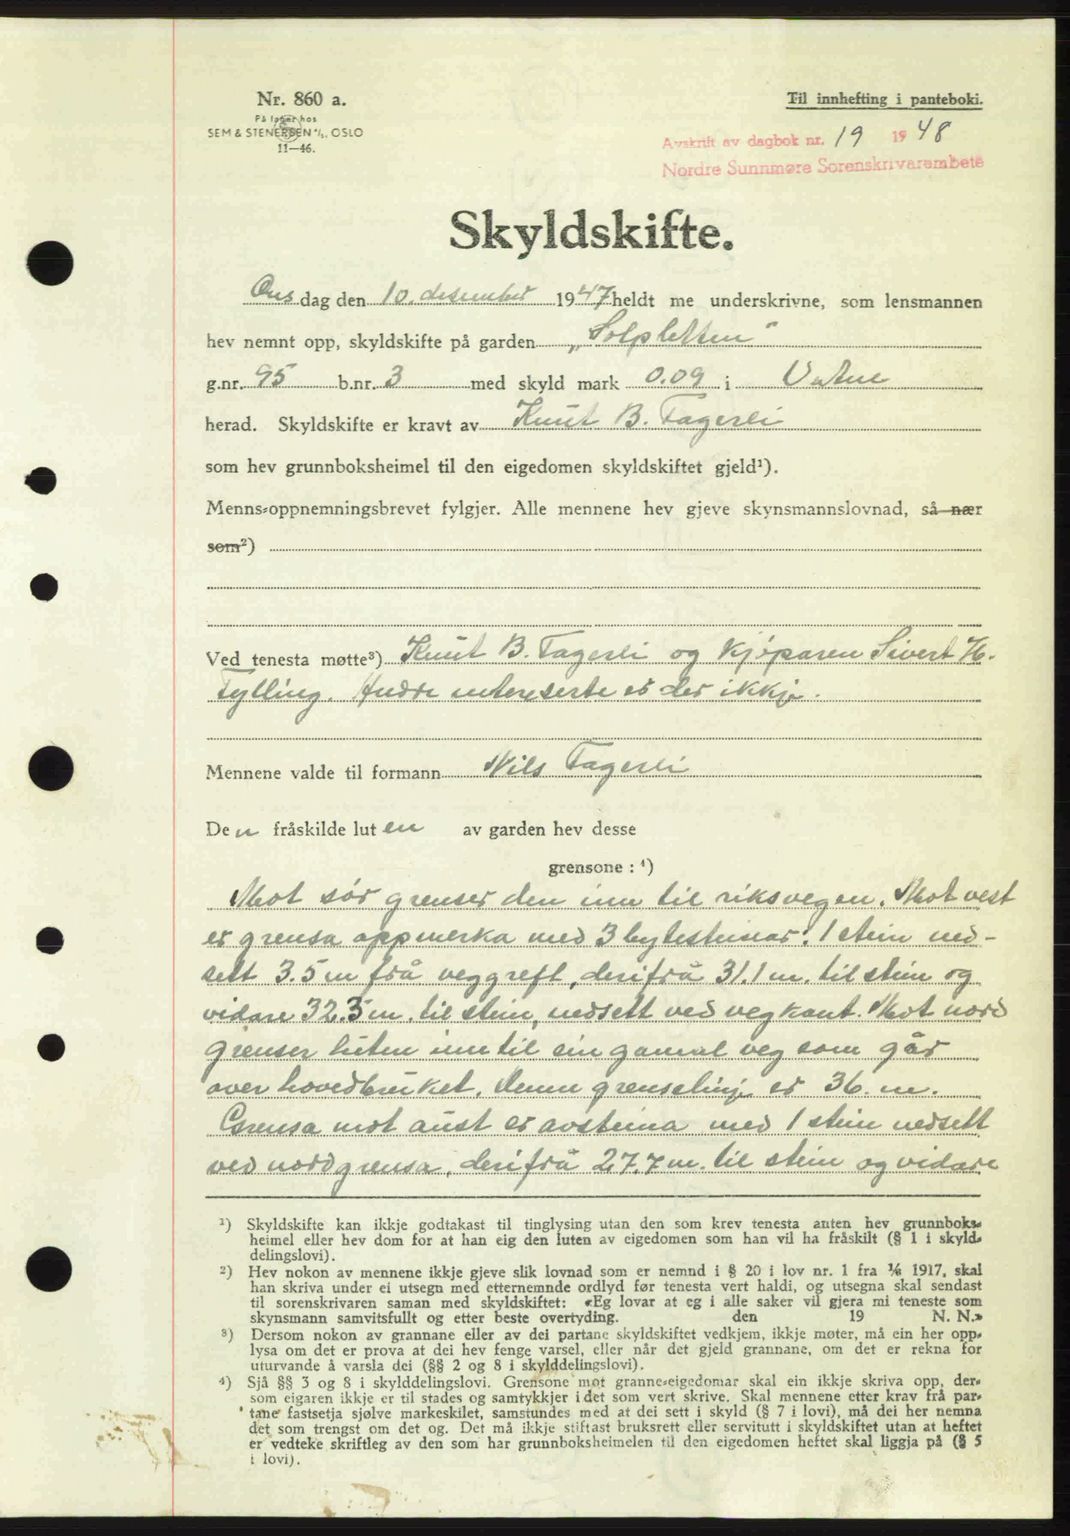 Nr. 860 a.
På lager hos
SEM & STENERSEN A/S, OSLO
11—46.
Til innhefting i panteboki.
Avskrift av dagbok nr. 19 1948
Nordre Sunnmøre Sorenskrivarembete
Skyldskifte.
Ons dag den 10. desember 1947 heldt me underskrivne, som lensmannen
hev nemnt opp, skyldskifte på garden „Solpletten“
g.nr. 95 b.nr. 3 med skyld mark 0.09 i Vatne
herad. Skyldskifte er kravt av Knut B. Fagerli
som hev grunnboksheimel til den eigedomen skyldskiftet gjeld¹).
Menns-oppnemningsbrevet fylgjer. Alle mennene hev gjeve skynsmannslovnad, så nær
som²)
Ved tenesta møtte³) Knut B. Fagerli og kjøparen Sivert H.
Fylling. Andre intereserte er der ikkje.
Mennene valde til formann Nils Fagerli
Den fråskilde luten av garden hev desse
grensone : ⁴)
Mot sør grenser den inn til riksvegen. Mot vest
er grensa oppmerka med 3 bytesteinar: 1 stein ned-
sett 3.5 m frå veggreft, derifrå 31.1 m. til stein og
vidare 32.3 m. til stein, nedsett ved vegkant. Mot nord
grenser luten inn til ein gamal veg som går
over hovedbruket. Denne grenselinje er 36. m.
Grensa mot aust er avsteina med 1 stein nedsett
ved nordgrensa, derifrå 27.7 m. til stein og vidare
¹) Skyldskifte kan ikkje godtakast til tinglysing utan den som krev tenesta anten hev grunnboks-
heimel eller hev dom for at han eig den luten av eigedomen som han vil ha fråskilt (§ 1 i skyld-
delingslovi).
²) Hev nokon av mennene ikkje gjeve slik lovnad som er nemnd i § 20 i lov nr. 1 fra 1/6 1917, skal
han skriva under ei utsegn med etternemnde ordlyd før tenesta vert haldi, og utsegna skal sendast
til sorenskrivaren saman med skyldskiftet: «Eg lovar at eg i alle saker vil gjera mi teneste som
skynsmann samvitsfullt og etter beste overtyding. den 19 N. N.»
³) Dersom nokon av grannane eller av dei partane skyldskiftet vedkjem, ikkje møter, må ein her opp-
lysa om det er prova at dei hev fenge varsel, eller når det gjeld grannane, om det er rekna for
uturvande å varsla dei (§§ 2 og 8 i skylddelingslovi).
⁴) Sjå §§ 3 og 8 i skylddelingslovi. Grensone mot granne-eigedomar skal ein ikkje skriva opp, der-
som eigaren ikkje er til stades og samtykkjer i det som vert skrive. Skal mennene etter krav frå par-
tane fastsetja sjølve markeskilet, samstundes med at dei sett i skyld (§ 7 i lovi), må dei her nemna
det som trengst om det og. Det må ikkje stiftast bruksrett eller servitutt i skyldskiftet utan at heftet
er vedteke skriftleg av den som har grunnboksheimelen til den eigedomen heftet skal liggja på (§ 5
i lovi).